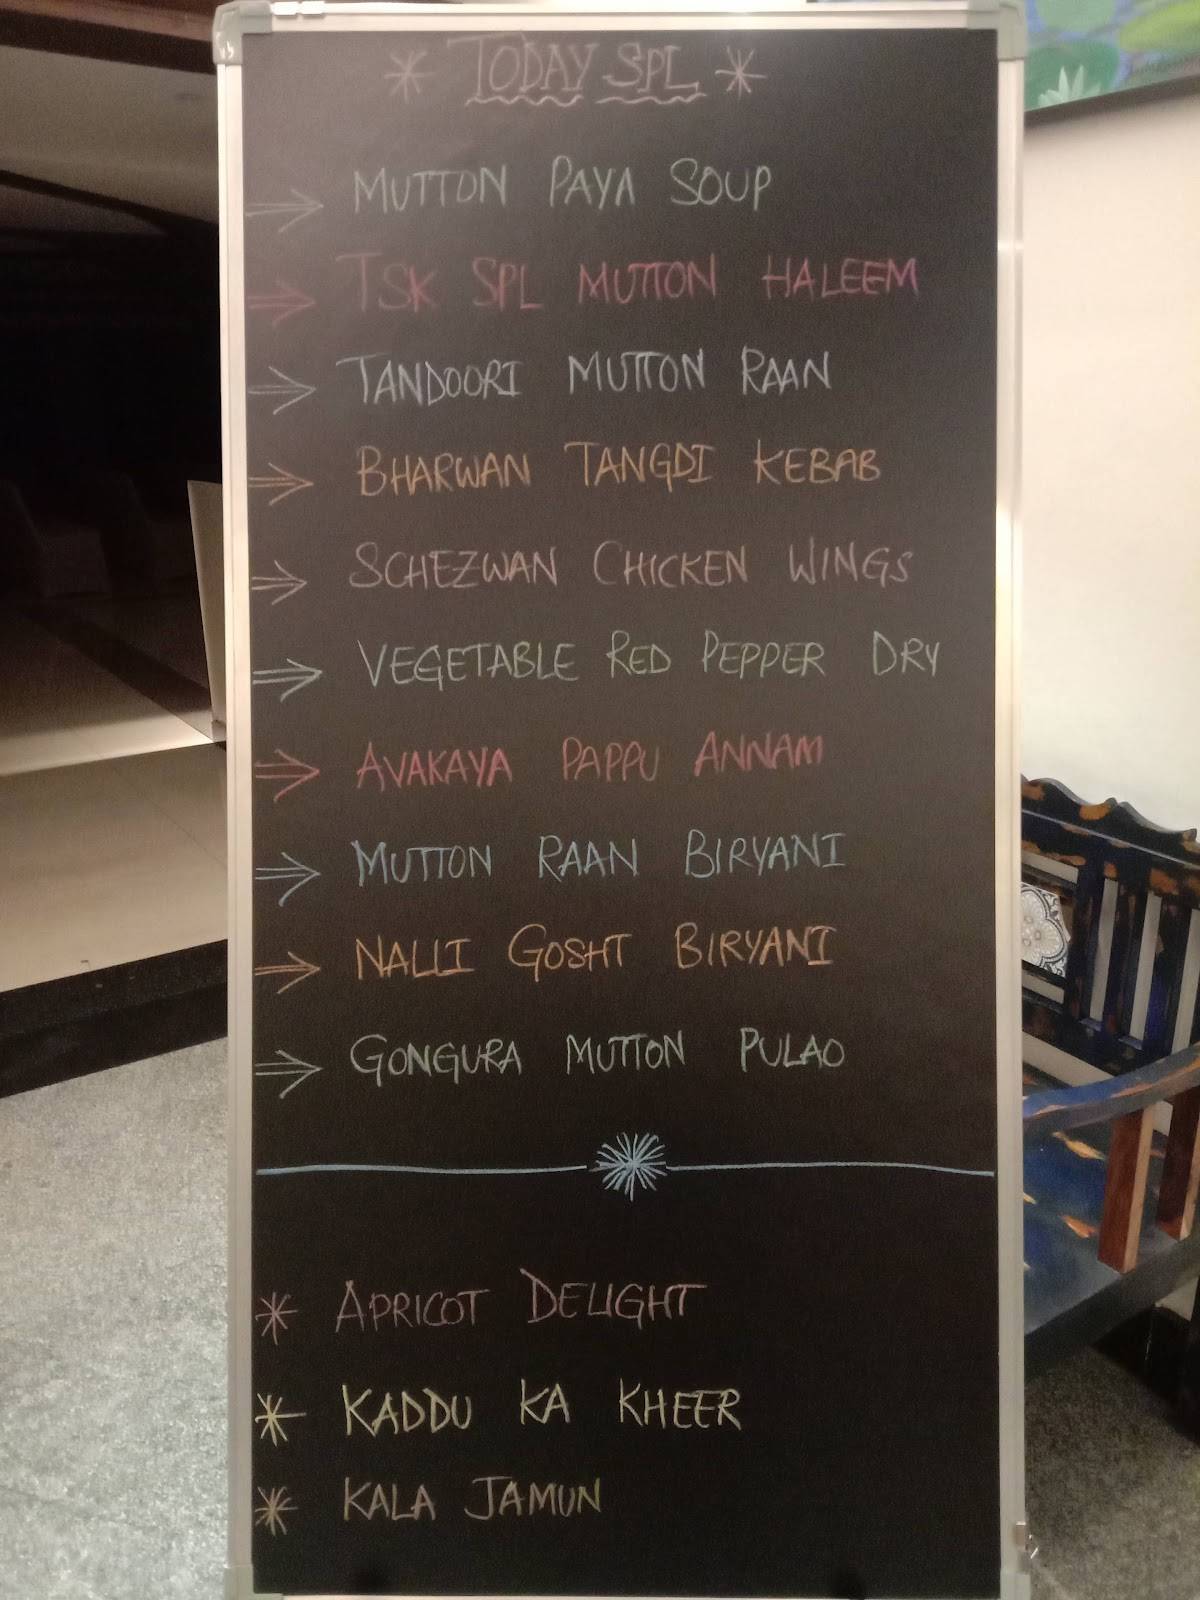 * TODAY SPL *
→ MUTTON PAYA SOUP
→ TSK SPL MUTTON HALEEM
→ TANDOORI MUTTON RAAN
→ BHARWAN TANGDI KEBAB
→ SCHEZWAN CHICKEN WINGS
→ VEGETABLE RED PEPPER DRY
→ AVAKAYA PAPPU ANNAM
→ MUTTON RAAN BIRYANI
→ NALLI GOSHT BIRYANI
→ GONGURA MUTTON PULAO
* APRICOT DELIGHT
* KADDU KA KHEER
* KALA JAMUN